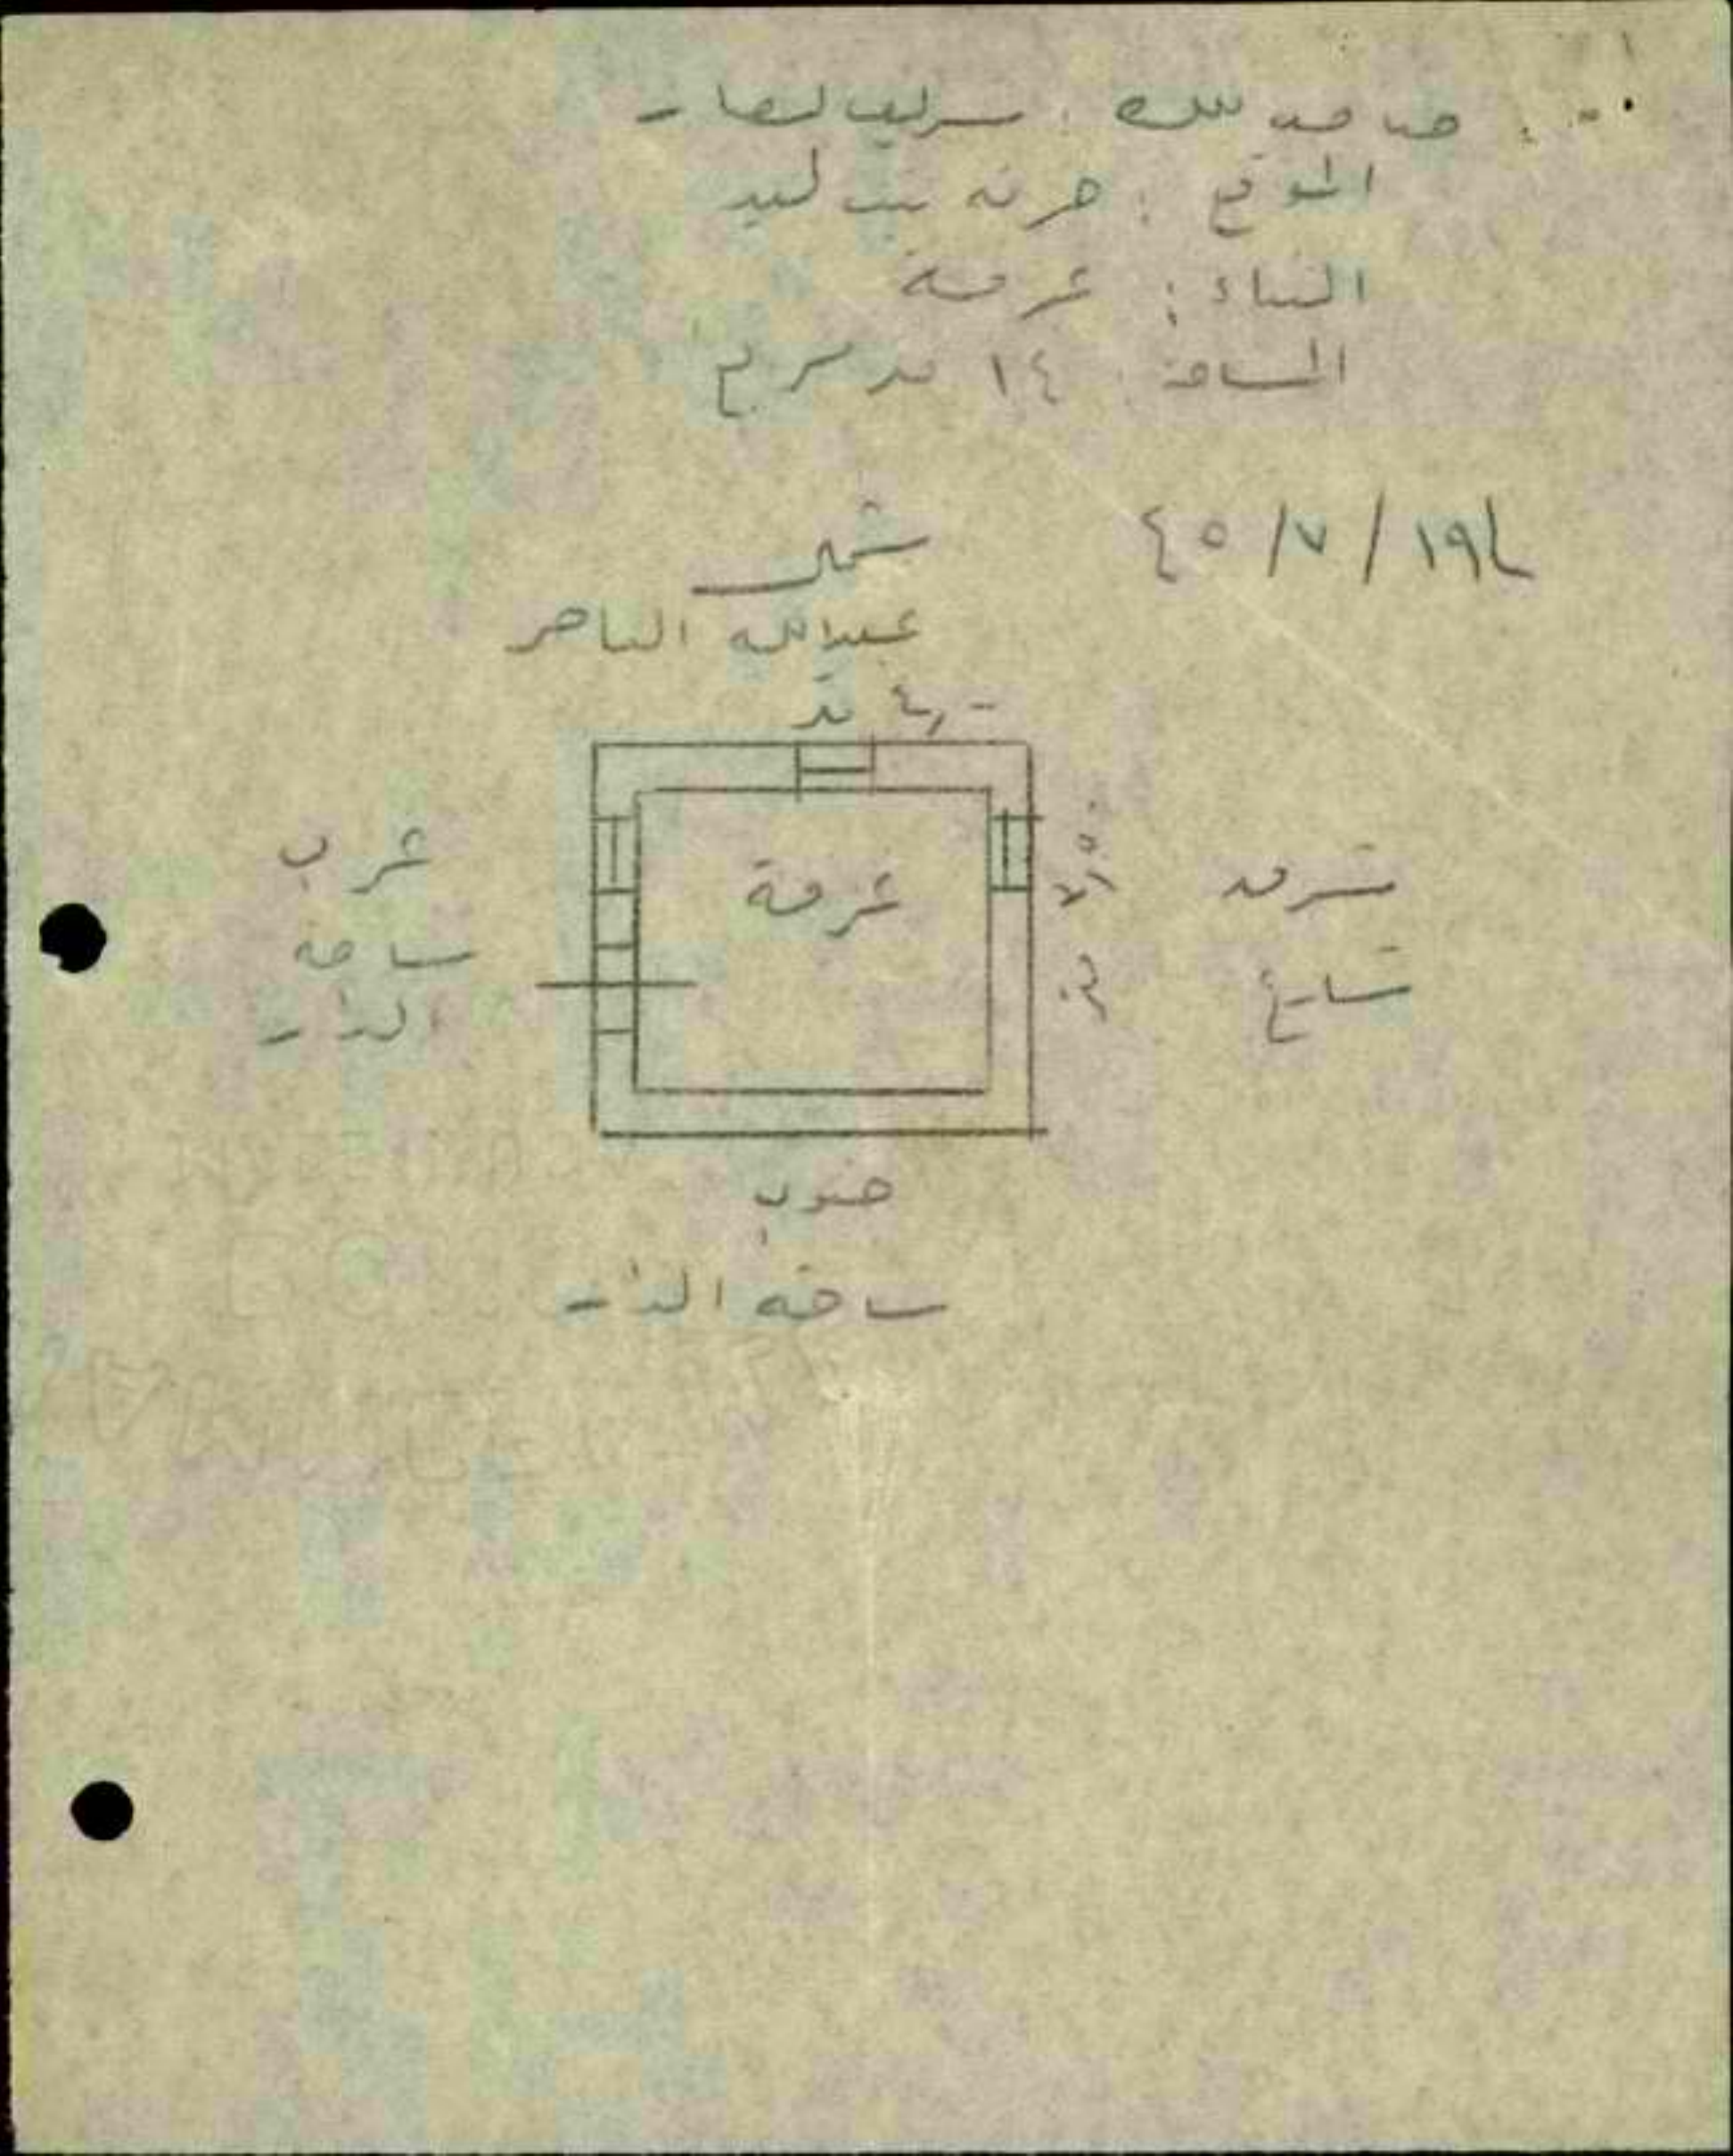 صاحب الملك : شريف النصار
الموقع : خربة بيت ليد
البناء : غرفة
المساحة : ١٤ متر مربع
٤٥/٧/١٩٤
شمال
عبدالله الناصر
٤,٠٠ متر
غرب
ساحة
الدار
غرفة
٣,٥٠
متر
شرق
شارع
جنوب
ساحة الدار